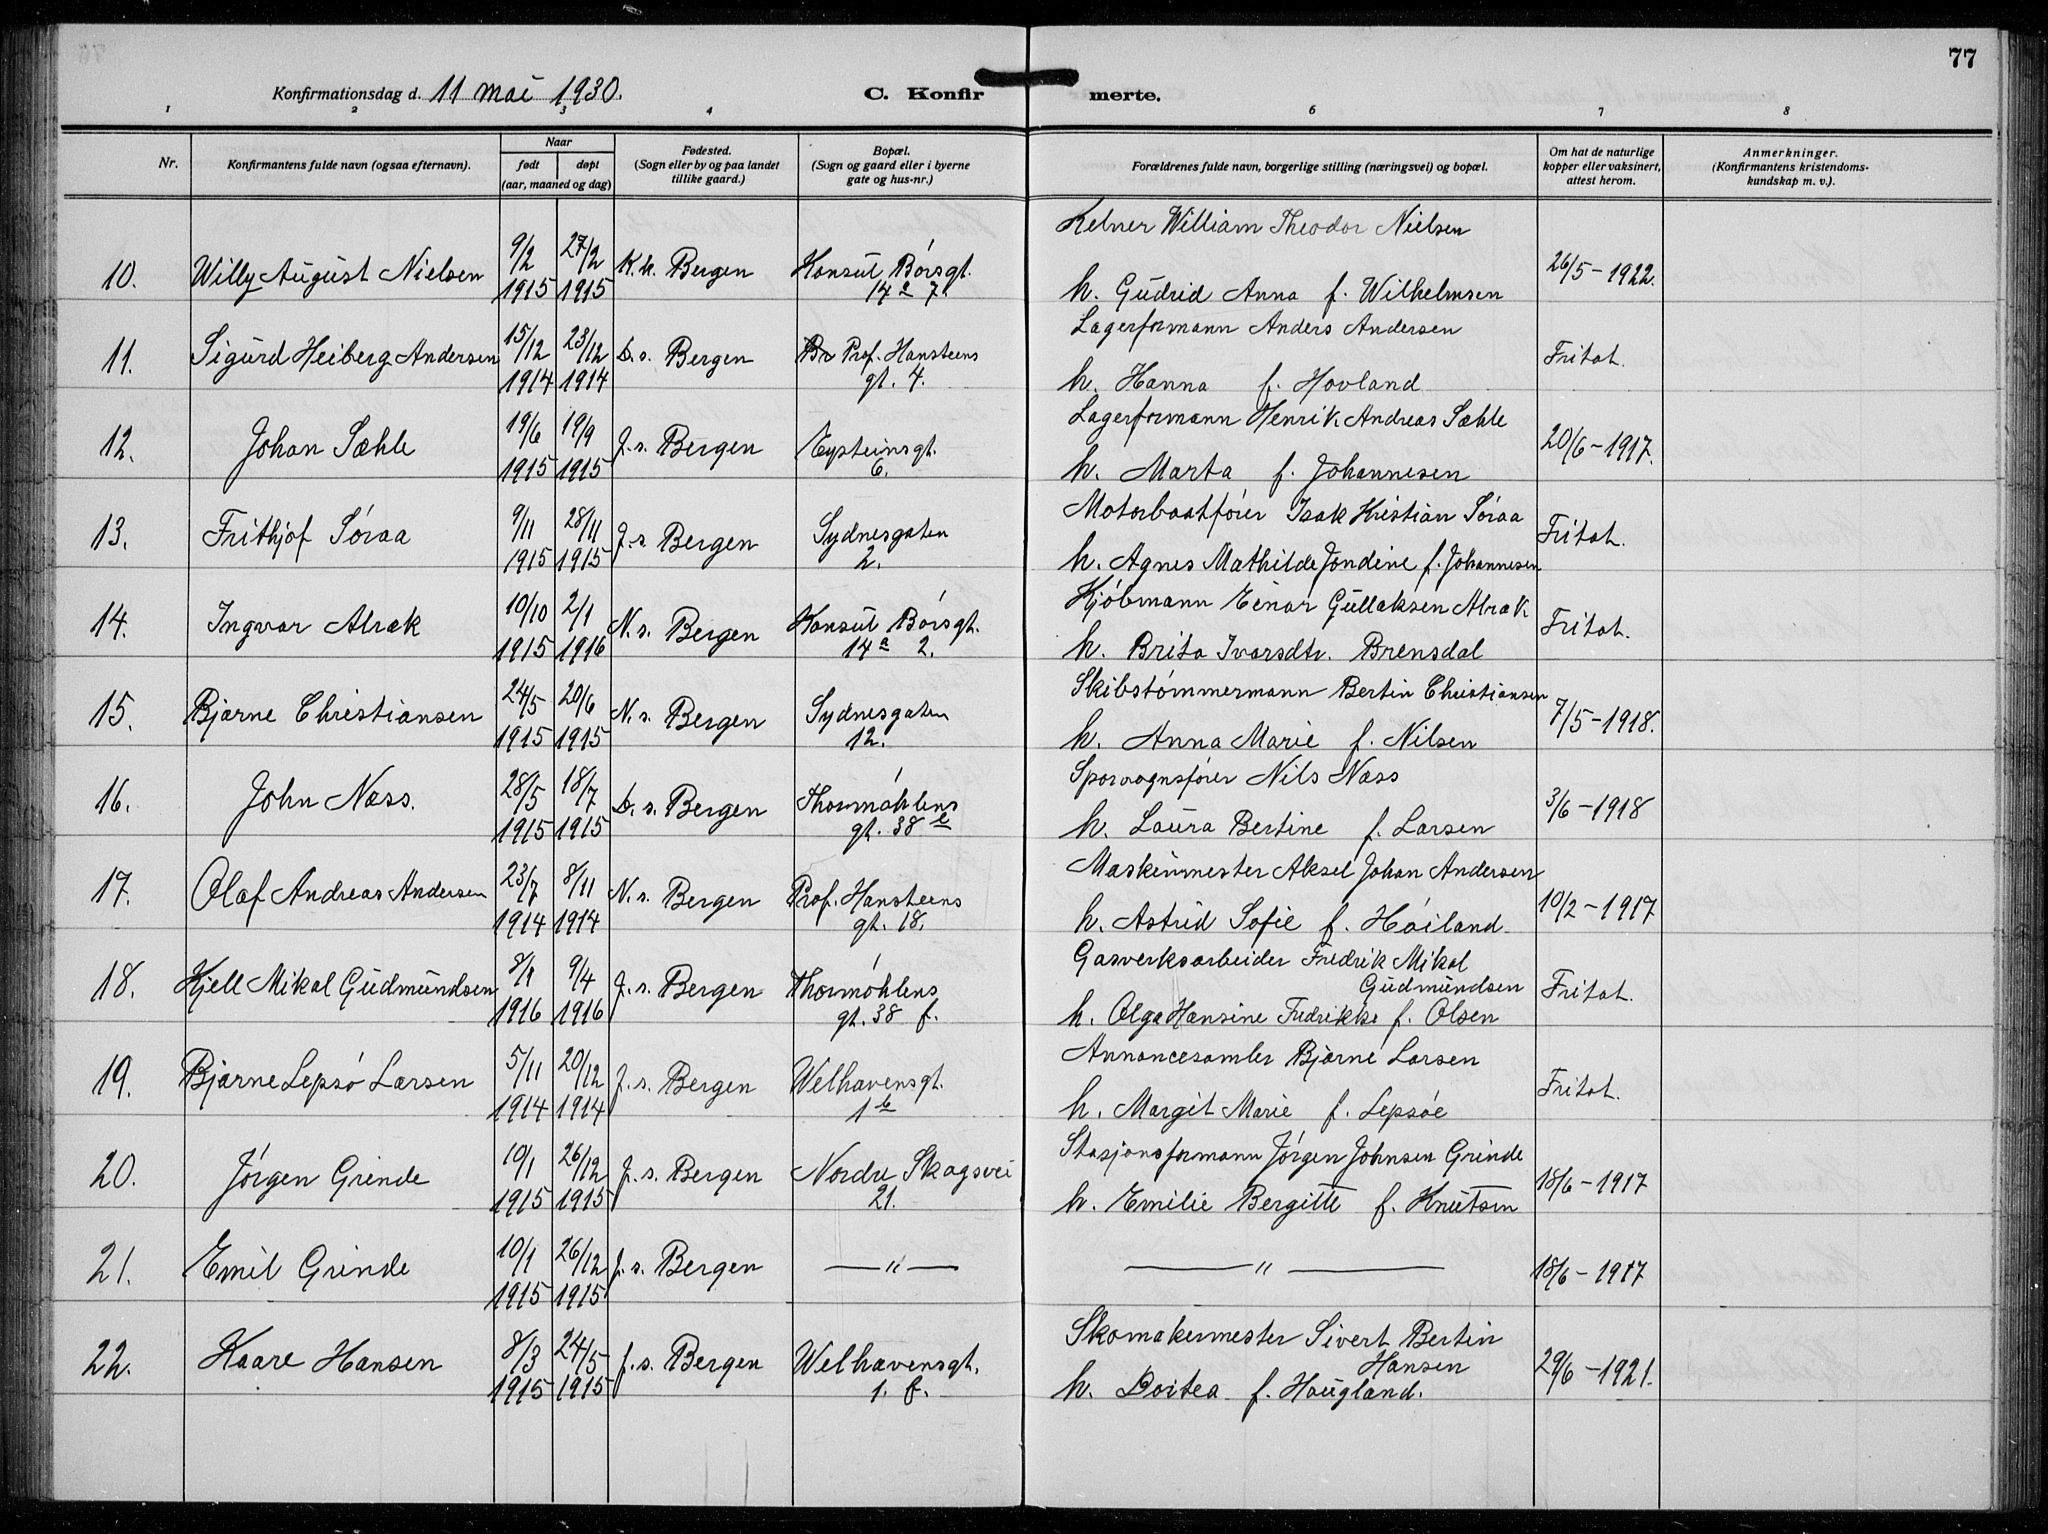 77
Konfirmationsdag d. 11 mai 1930.
C. Konfir
merte.
1 2 3 4 6 7 8
Nr.
Konfirmantens fulde navn (ogsaa efternavn).
Naar
født
døpt
(aar, maaned og dag)
Fødested.
(Sogn eller by og paa landet
tillike gaard.)
Bopæl.
(Sogn og gaard eller i byerne
gate og hus-nr.)
Forældrenes fulde navn, borgerlige stilling (næringsvei) og bopæl.
Om hat de naturlige
kopper eller vaksinert,
attest herom.
Anmerkninger.
(Konfirmantens kristendoms-
kundskap m. v.).
Kelner William Theodor Nielsen
10. Willy August Nielsen 9/2 1915 27/2 1915 K.k. Bergen Konsul Børsgt. 26/5 - 1922.
14 a 7.
h. Gudrid Anna f. Wilhelmsen
Lagerformann Anders Andersen
11. Sigurd Heiberg Andersen 15/12 1914 23/12 1914 D.s. Bergen Prof. Hansteens Fritat.
gt. 4.
h. Hanna f. Hovland
Lagerformann Henrik Andreas Sæhle
12. Johan Sæhle 19/6 1915 19/9 1915 J.s. Bergen Eysteinsgt. 20/6 - 1917.
6.
h. Marta f. Johannesen
Motorbaatfører Isak Kristian Søraa
13. Frithjof Søraa 9/11 1915 28/11 1915 J.s. Bergen Sydnesgaten Fritat.
2.
h. Agnes Mathilde Jondine f. Johannesen
Kjøbmann Einar Gullaksen Alræk
14. Ingvar Alræk 10/10 1915 2/1 1916 N.s. Bergen Konsul Børsgt. Fritat.
14 a 2.
h. Brita Ivarsdtr. Brensdal
Skibstømmermann Bertin Christiansen
15. Bjarne Christiansen 24/5 1915 20/6 1915 N.s. Bergen Sydnesgaten 7/5 - 1918.
12.
h. Anna Marie f. Nilsen
Sporvognsfører Nils Næss
16. John Næss. 28/5 1915 18/7 1915 D.s. Bergen Thormøhlens 3/6 - 1918
gt. 38
h. Laura Bertine f. Larsen
Maskinmester Aksel Johan Andersen
17. Olaf Andreas Andersen 23/7 1914 8/11 1914 N.s. Bergen Prof. Hansteens 10/2 - 1917
gt. 18.
h. Astrid Sofie f. Høiland
Gasverksarbeider Fredrik Mikal
Gudmundsen
18. Kjell Mikal Gudmundsen 8/1 1916 9/4 1916 J.s. Bergen Thormøhlens Fritat.
gt. 38 f.
h. Olga Hansine Fredrikke f. Olsen
Annoncesamler Bjarne Larsen
19. Bjarne Lepsø Larsen 5/11 1914 20/12 1914 J.s. Bergen Welhavensgt. Fritat.
1 b
h. Margit Marie f. Lepsøe
Stasjonsformann Jørgen Johnsen Grinde
20. Jørgen Grinde 10/1 1915 26/12 1915 J.s. Bergen Nordre Skogsvei 18/6 - 1917
21.
h. Emilie Bergitte f. Knutsen
21. Emil Grinde 10/1 1915 26/12 1915 J.s. Bergen —"— —"— 18/6 - 1917
Skomakermester Sivert Bertin
Hansen
22. Kaare Hansen 8/3 1915 24/5 1915 J.s. Bergen Welhavensgt. 29/6 - 1921.
1. f.
h. Dortea f. Haugland.